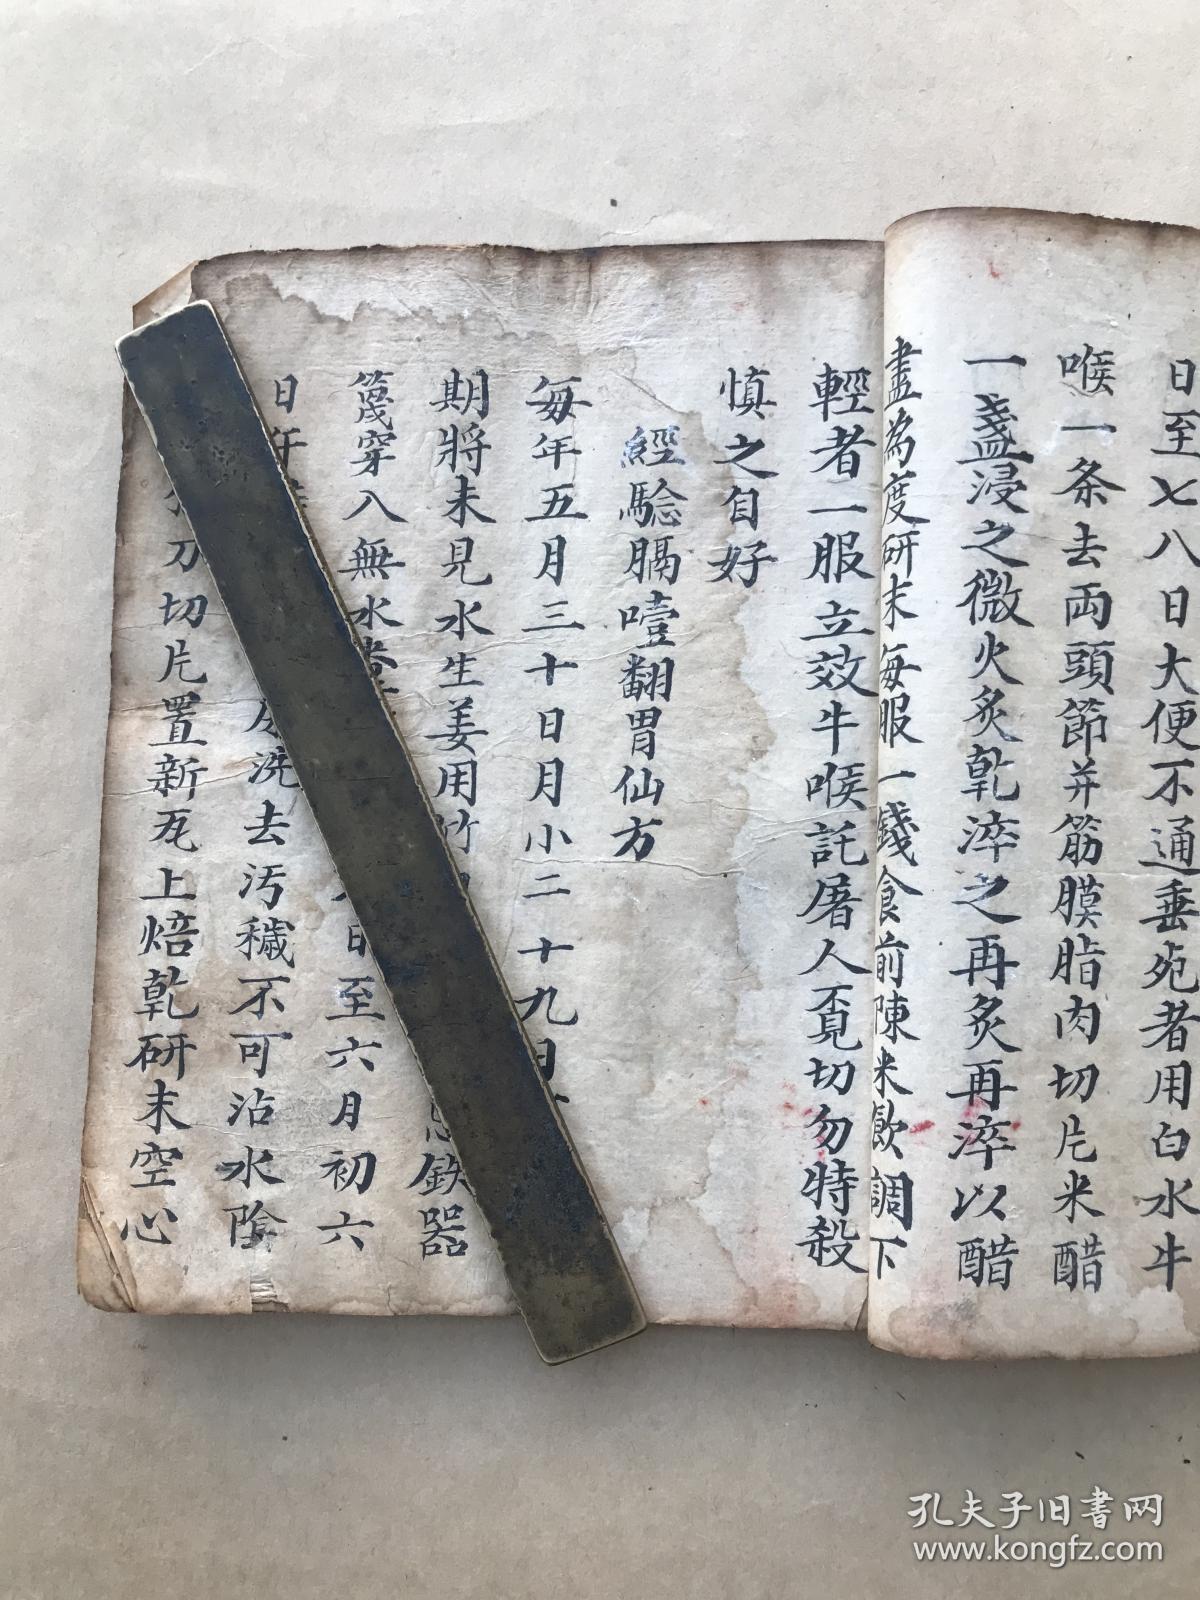 日至七八日大便不通垂死者用白水牛
喉一条去両頭節并筋膜脂肉切片米醋
一盞浸之微火炙乾淬之再炙再淬以醋
盡為度研末每服一錢食前陳米飲調下
輕者一服立效牛喉託屠人覔切勿特殺
慎之自好
經驗膈噎翻胃仙方
每年五月三十日月小二十九日
期將未見水生姜用竹 忌鉄器
篾穿八無水 日至六月初六
日午 洗去污穢不可沾水陰
刀切片置新瓦上焙乾研末空心
孔夫子旧书网
www.kongfz.com